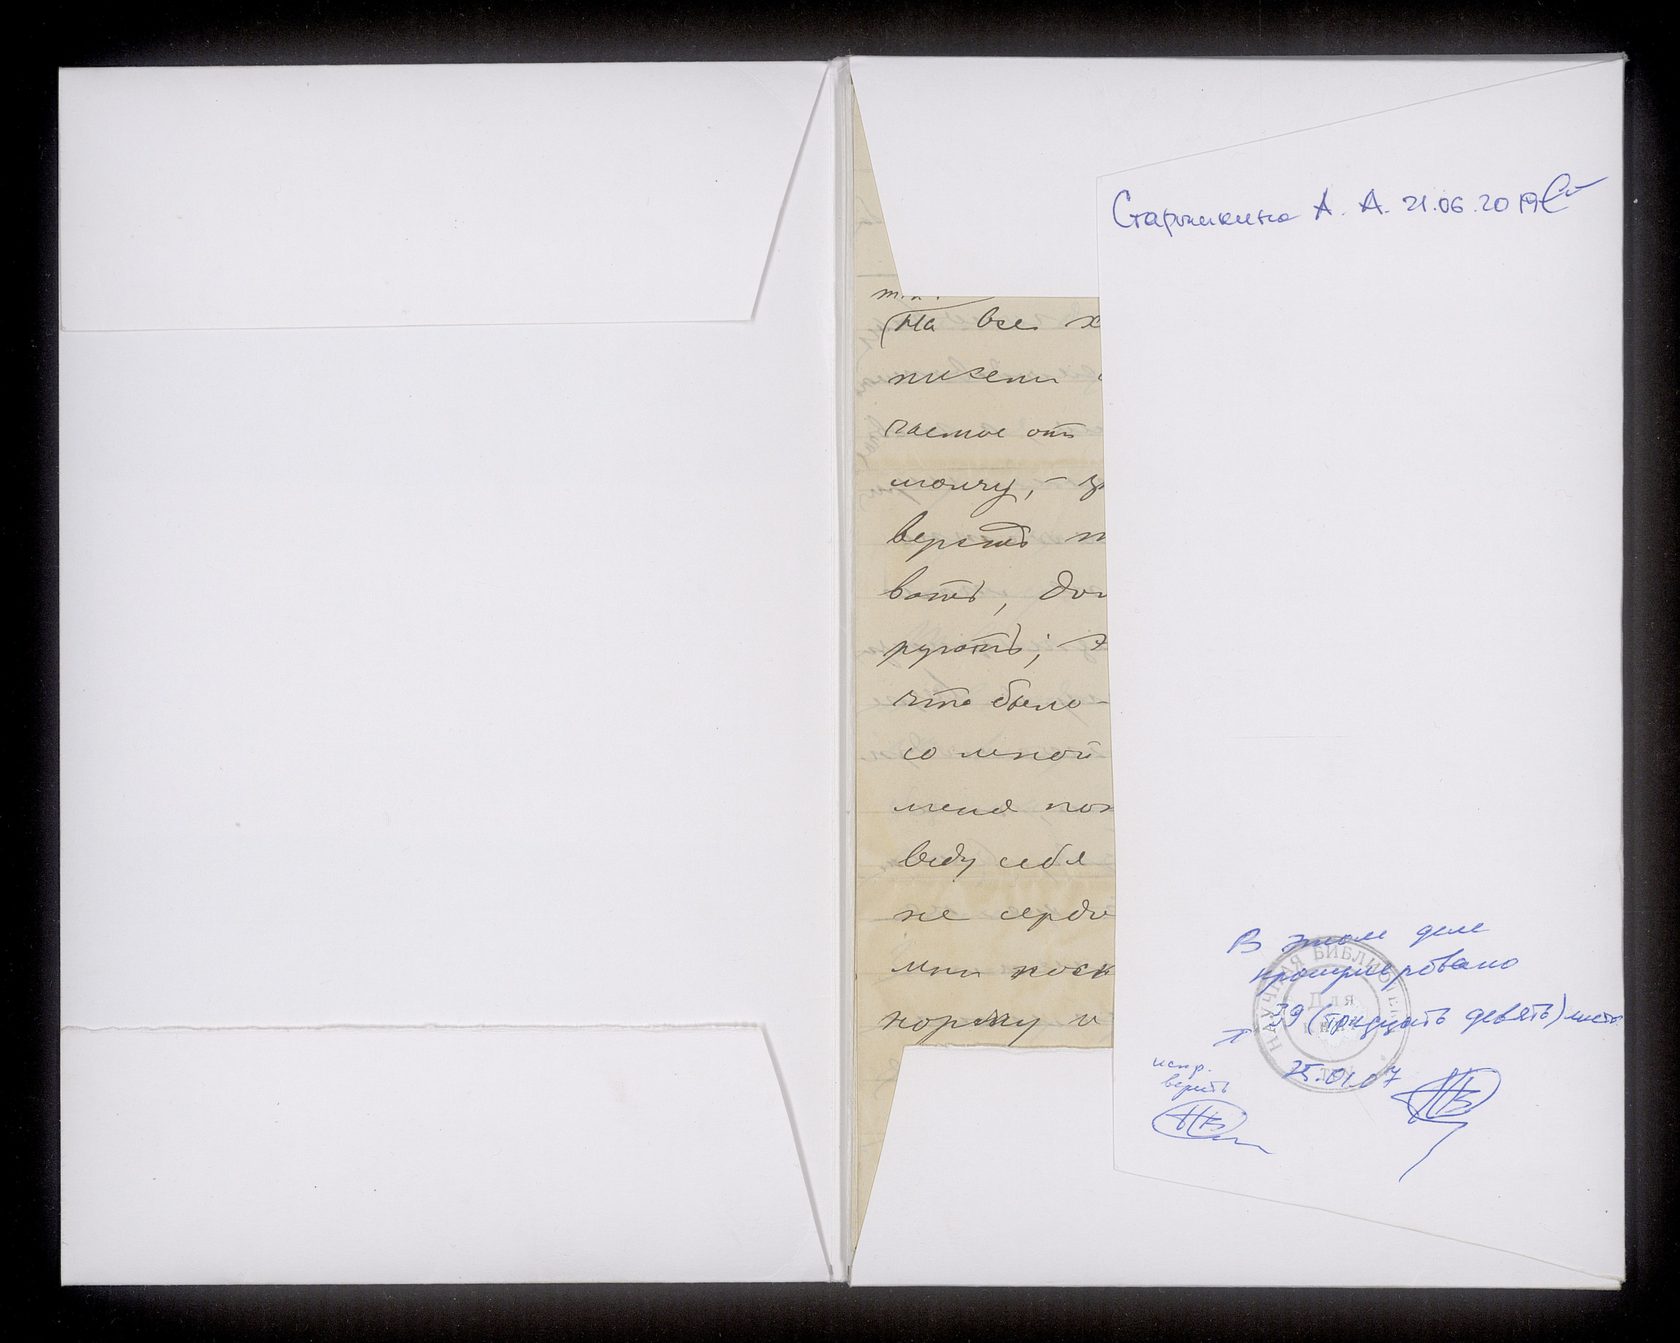 (На все х
писем
чаемое отъ
молчу, –
верстъ п
вать, дол
ругать;
что было –
со мной
меня, пож
веду себя
не серди
мни поск
норму и
А. А. 21.06.2019
В этом деле
пронумеровано
39 (тридцать девять) листо
25.01.07
испр.
верить
НАУЧНАЯ БИБЛИОТЕ
Для